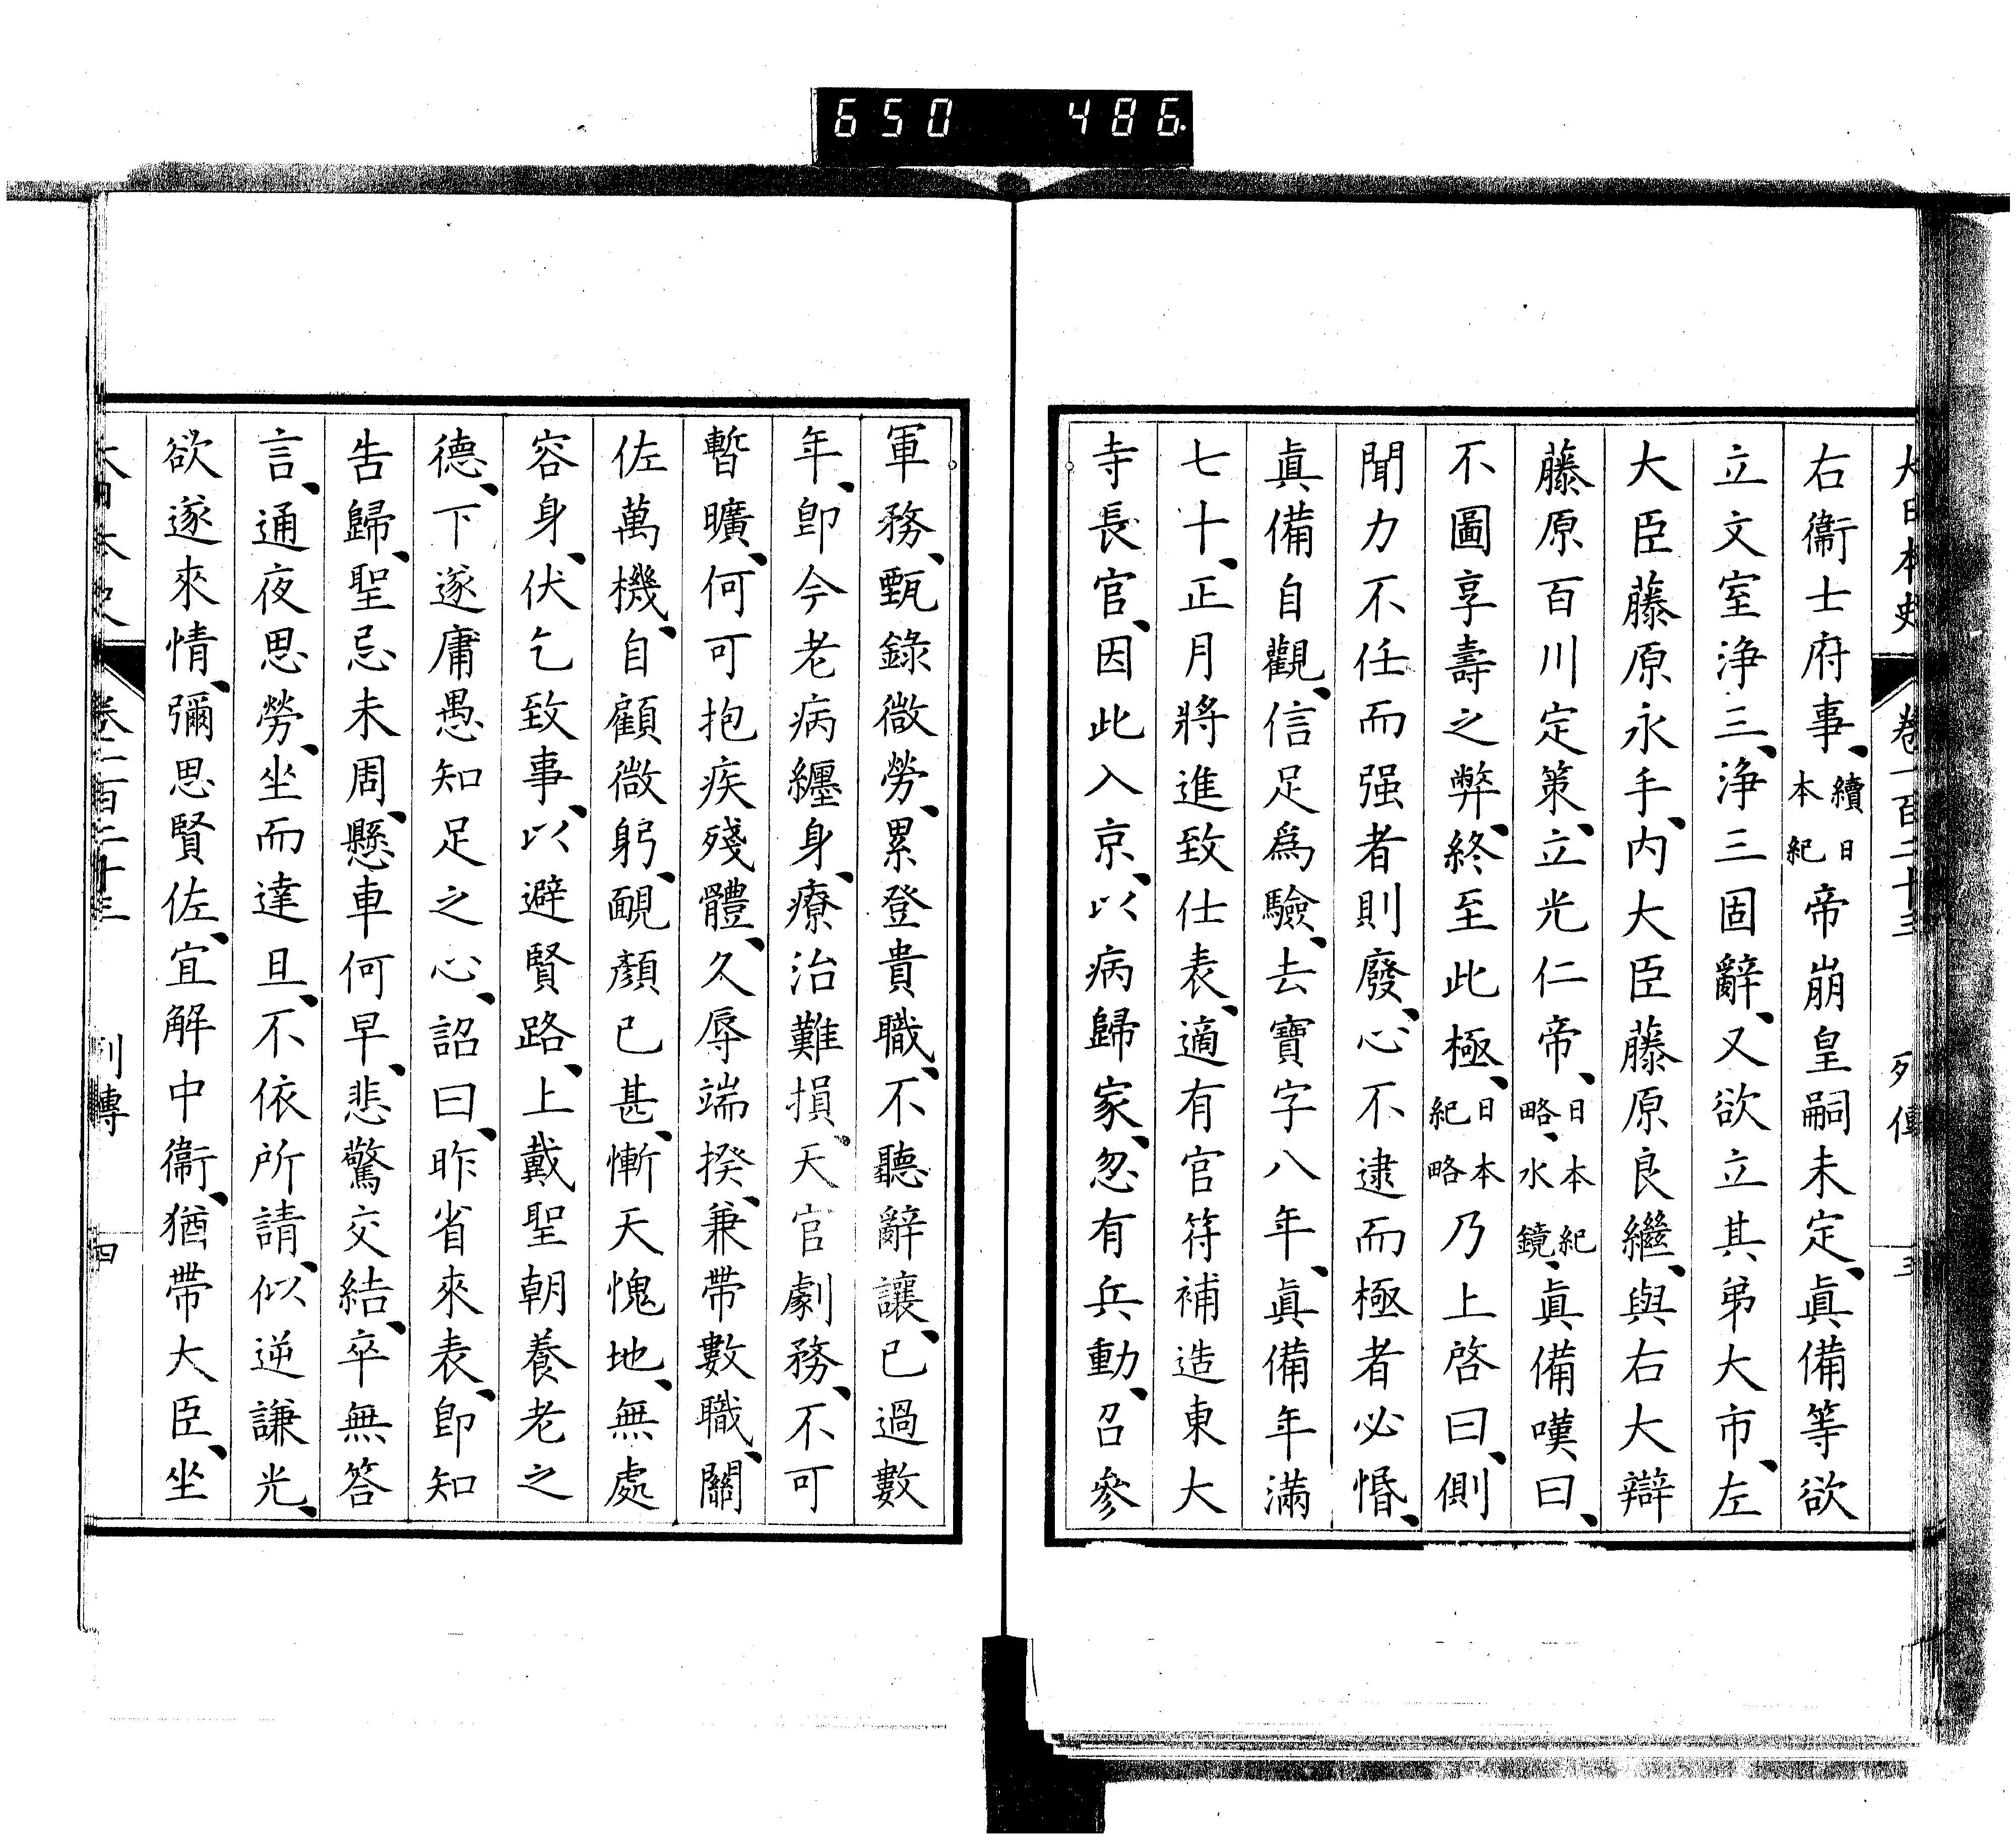 650 486
大日本史 卷一百二十三 列傳 三
右衞士府事、續日本紀帝崩皇嗣未定、眞備等欲
立文室浄三、浄三固辭、又欲立其弟大市、左
大臣藤原永手、内大臣藤原良繼、與右大辯
藤原百川定策、立光仁帝、日本紀略、水鏡、眞備嘆曰、
不圖享壽之弊、終至此極、日本紀略乃上啓曰、側
聞力不任而强者則廢、心不逮而極者必惛、
眞備自觀、信足爲驗、去寶字八年、眞備年滿
七十、正月將進致仕表、適有官符補造東大
寺長官、因此入京、以病歸家、忽有兵動、召參
軍務、甄錄微勞、累登貴職、不聽辭讓、已過數
年、卽今老病纏身、療治難損、天官劇務、不可
暫曠、何可抱疾殘體、久辱端揆、兼帶數職、闕
佐萬機、自顧微躬、靦顏已甚、慚天愧地、無處
容身、伏乞致事、以避賢路、上戴聖朝養老之
德、下遂庸愚知足之心、詔曰、昨省來表、卽知
告歸、聖忌未周、懸車何早、悲驚交結、卒無答
言、通夜思勞、坐而達旦、不依所請、似逆謙光、
欲遂來情、彌思賢佐、宜解中衞、猶帶大臣、坐
大日本史 卷一百二十三 列傳 四